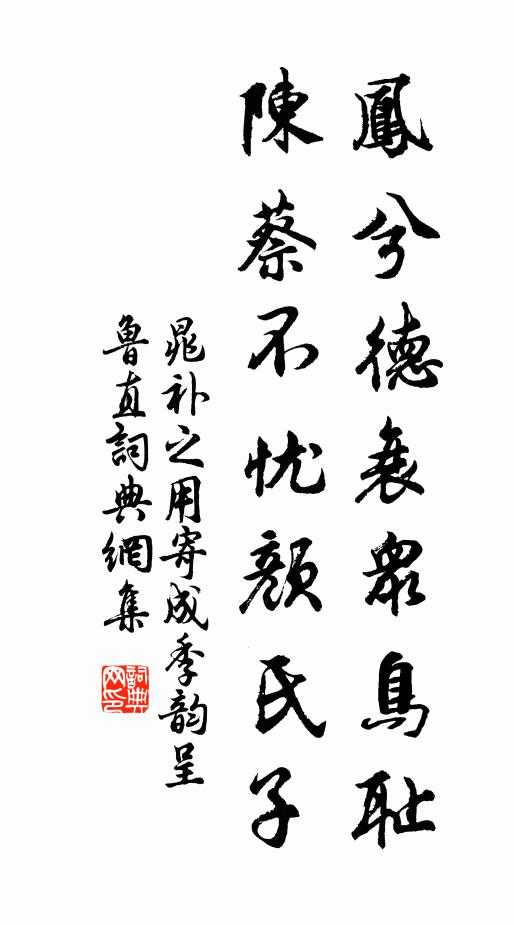 鳳兮德衰衆鳥耻
陳蔡不忧顔氏子
晁补之用寄成季韵呈
魯直詞典網集
詞典网印